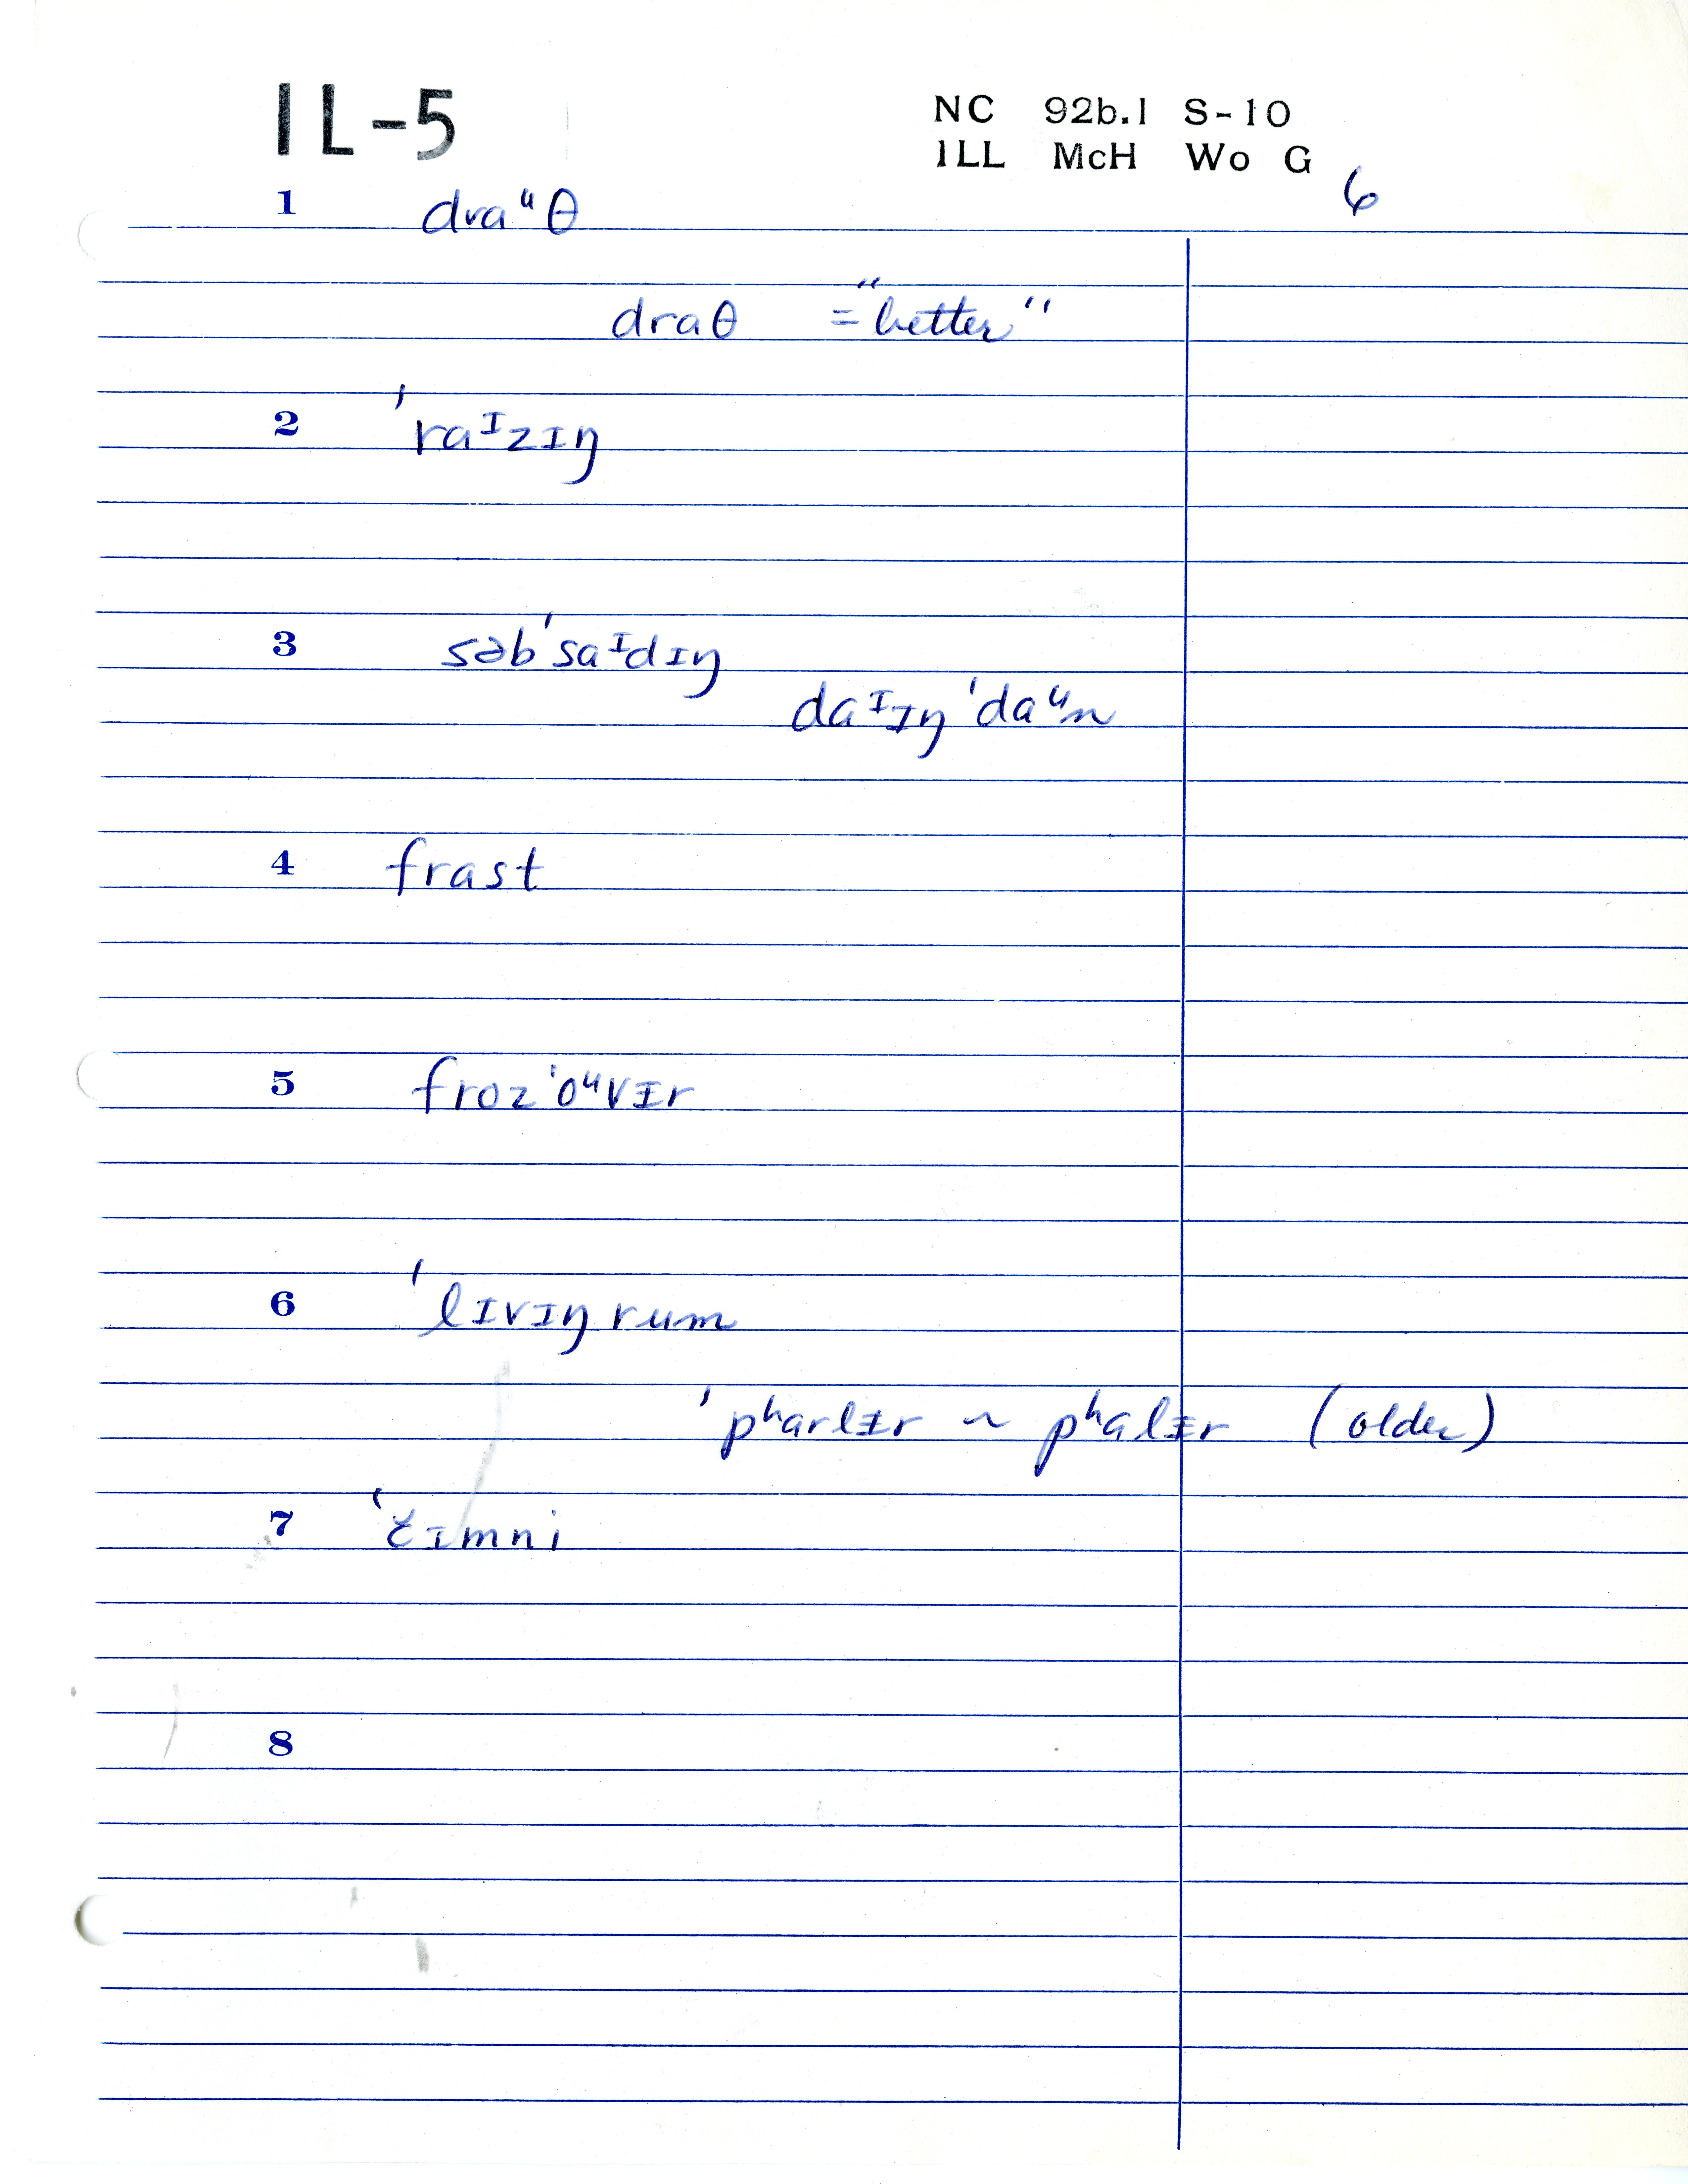 IL-5
NC 92b.1 S-10
ILL McH Wo G
6
1 draᵘθ
draθ = "better"
2 ˈraᶦzɪŋ
3 səbˈsaᶦdɪŋ
daᶦɪŋ ˈdaᵘn
4 frast
5 frozˈoᵘvɨr
6 ˈlɪvɪŋrum
ˈpʰarlɨr ~ pʰalɨr (older)
7 ˈčɪmni
8